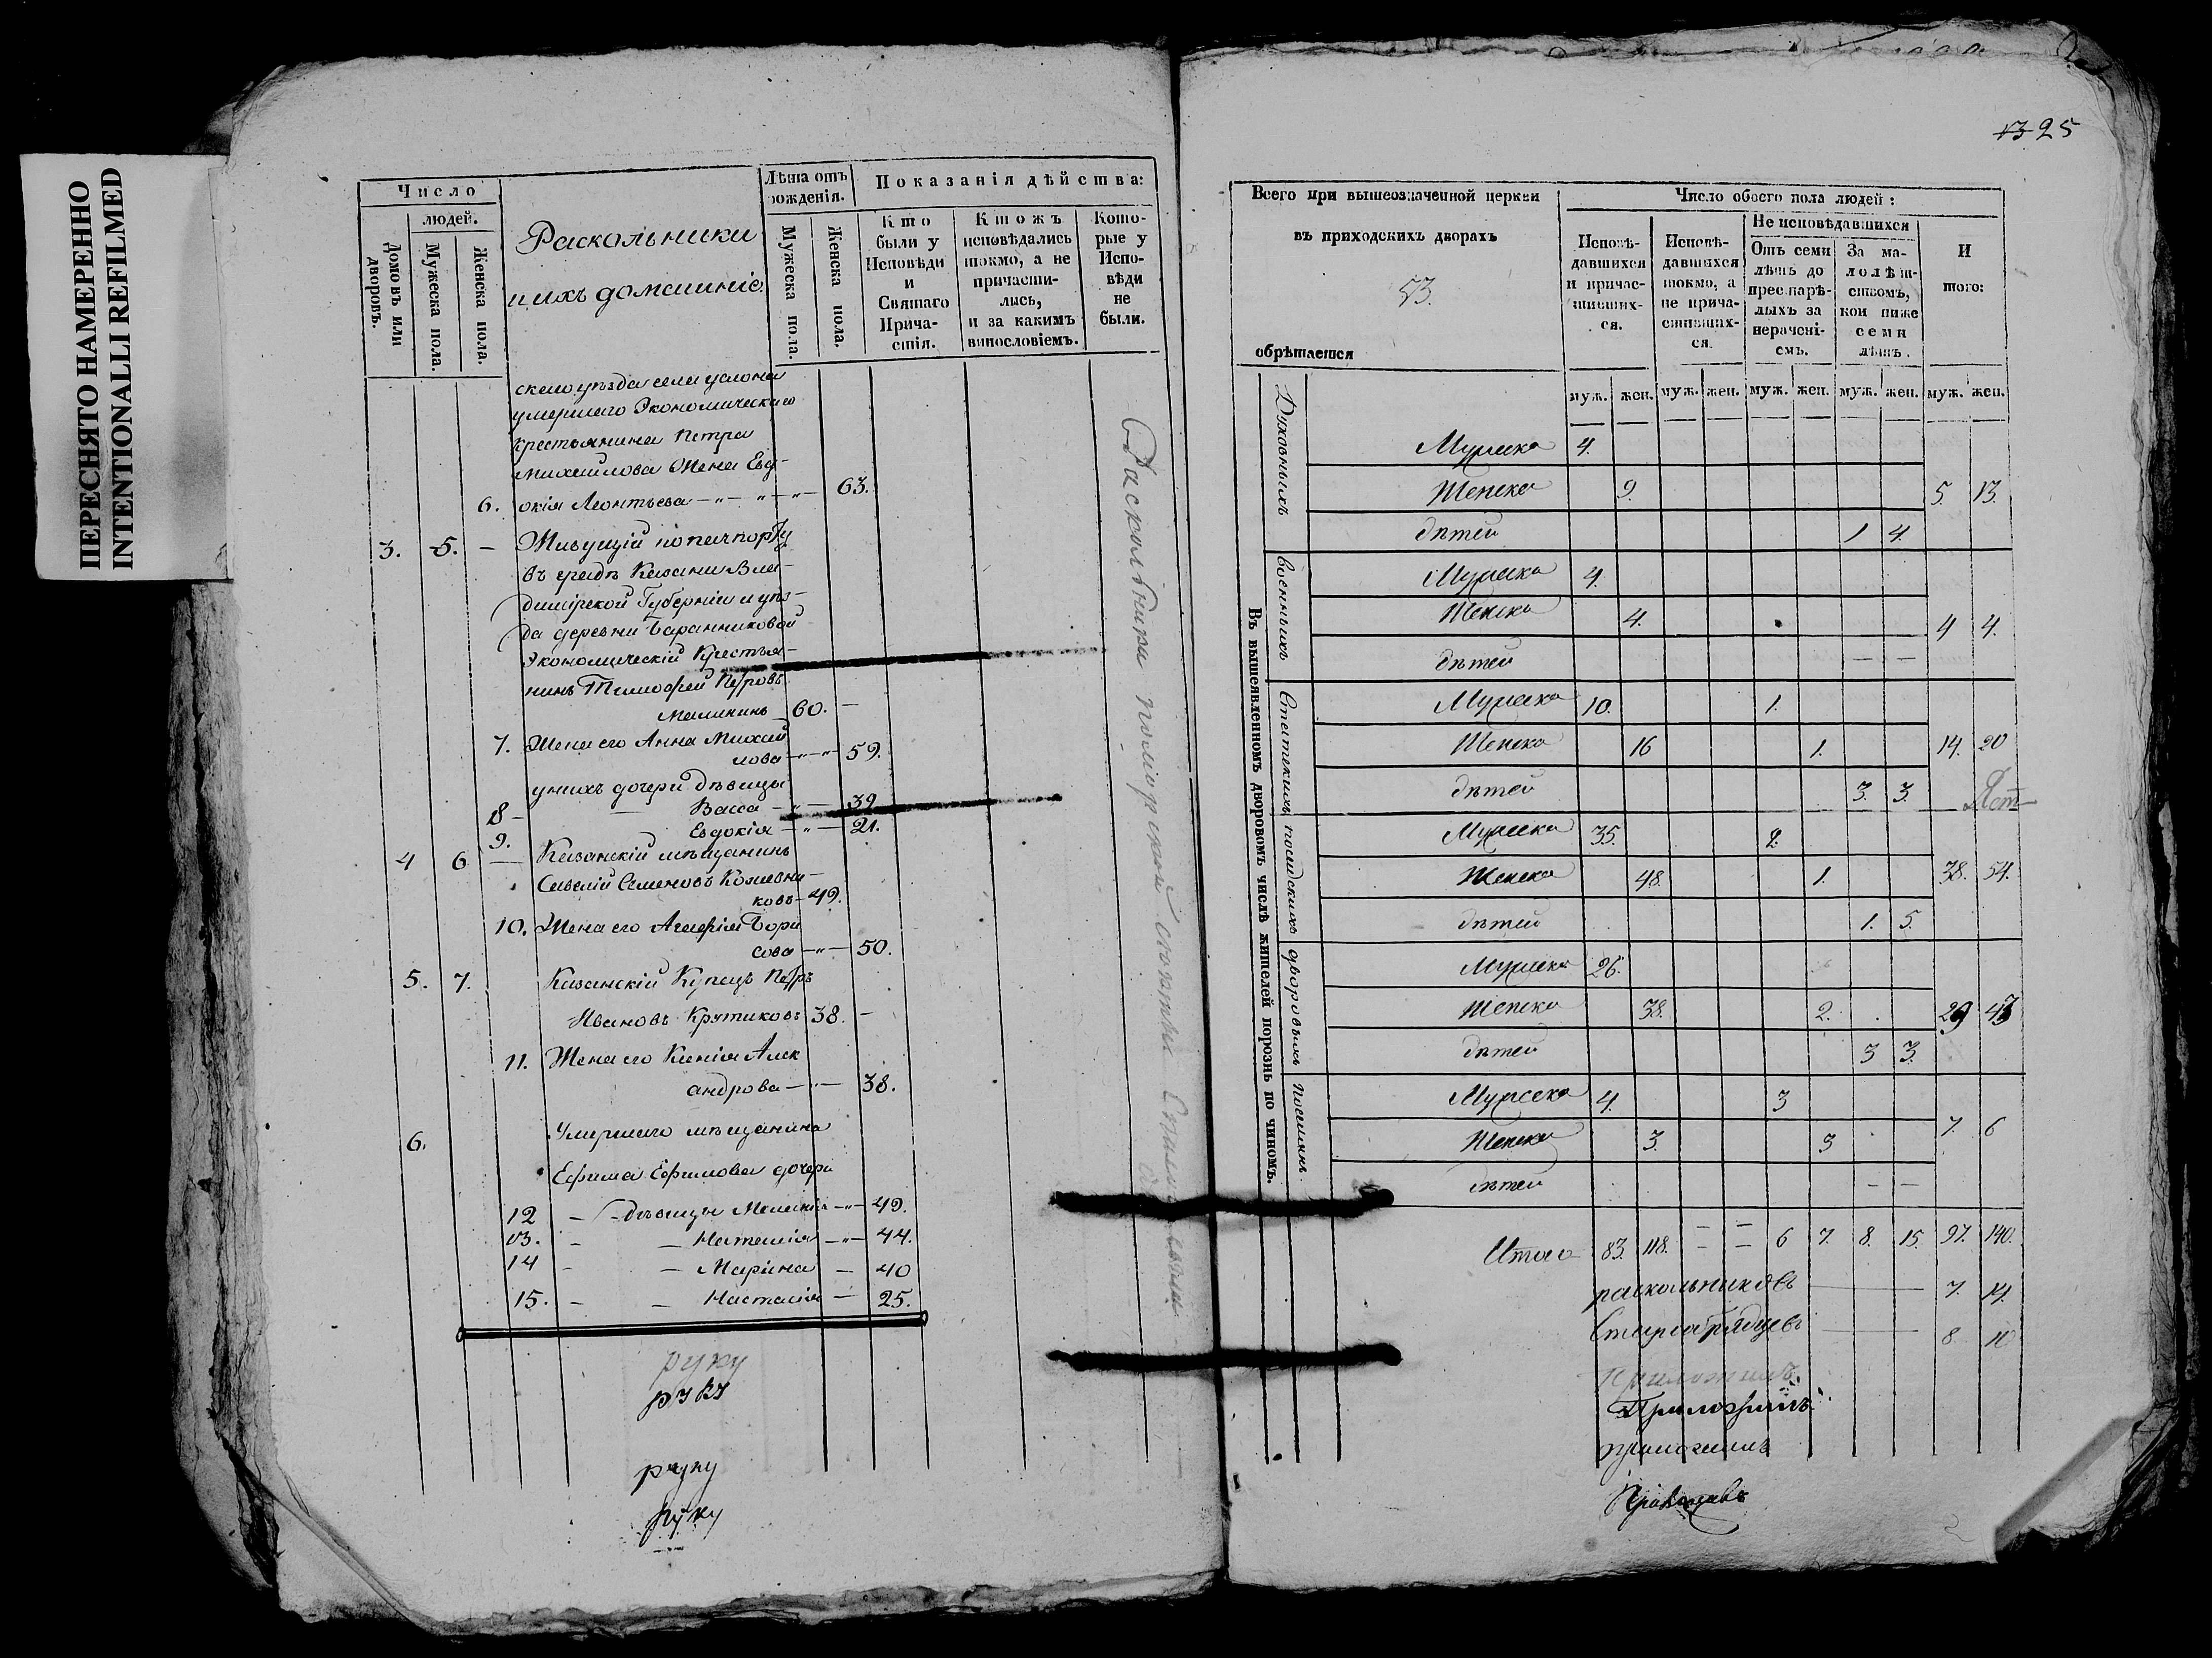 ПЕРЕСНЯТО НАМЕРЕННО
INTENTIONALLI REFILMED
Число
людей.
Домовъ или дворовъ.
Мужеска пола.
Женска пола.
Раскольники
и ихъ домашніе.
Лѣта отъ рожденія.
Мужеска пола.
Женска пола.
Показанія дѣйства:
Кто были у Исповѣди и Святаго Причастія.
Ктожъ исповѣдались токмо, а не причастились, и за какимъ винословіемъ.
Которые у Исповѣди не были.
скаго уѣзда села услона
умершаго Экономическаго
крестьянина Петра
Михайлова Жена Евд-
6. окія Леонтьева — " — " — " — 63.
3. 5. — Живущій по пачпорту
въ градѣ Казани Вла-
димірской Губерніи и уѣз-
да деревни Баранниковой
Экономическій Крестья-
нинъ Тимофей Петровъ
Малининъ 60. —
7. Жена его Анна Михай
лова — " — 59.
у нихъ дочери дѣвицы
8 — Васса — " — 39
9. Евдокія — " — 21.
4 6 — Казанскій мѣщанинъ
Савелій Семеновъ Кожевни-
ковъ — 49.
10. Жена его Агафія Бори
сова — " — 50.
5. 7. Казанскій Купецъ Петръ
Ивановъ Крутиковъ 38. —
11. Жена его Ксенія Алек
андрова — " — 38.
6. Умершаго мѣщанина
Ефима Ефимова дочери
12 — дѣвицы Меланія — " — 49.
13. — — Наталія — " — 44.
14 — — Марина — 40
15. — — Настасія — 25.
руку
руку
руку
руку
Раскольники поморской
13 25
Всего при вышеозначенной церкви
въ приходскихъ дворахъ
53.
обрѣтается
Число обоего пола людей:
Исповѣдавшихся и причастившихся.
Исповѣдавшихся токмо, а не причастившихся.
Не исповѣдавшихся
Отъ семи лѣтъ до престарѣлыхъ за нераченіемъ.
За малолѣтствомъ, кои ниже семи лѣтъ.
И того:
муж. жен. муж. жен. муж. жен. муж. жен. муж. жен.
Въ вышеявленномъ дворовомъ числѣ жителей порознь по чиномъ.
Духовныхъ
Мужеска 4.
Женска 9. 5. 13.
дѣтей 1 4.
военныхъ
Мужеска 4.
Женска 4. 4 4.
дѣтей — —
Статскихъ
Мужеска 10. 1.
Женска 16 1. 14. 20
дѣтей 3. 3.
посадскихъ
Мужеска 35. 2.
Женска 48. 1. 38. 54.
дѣтей 1. 5.
дворовыхъ
Мужеска 26.
Женска 38. 2. 29 43
дѣтей 3 3.
поселянъ.
Мужеска 4. 3
Женска 3. 3 7. 6
дѣтей — —
Итого 83. 118. — — 6 7. 8. 15. 97. 140.
раскольниковъ — 7. 14.
Старообрядцевъ — 8. 10
приложилъ
Приложилъ
приложилъ